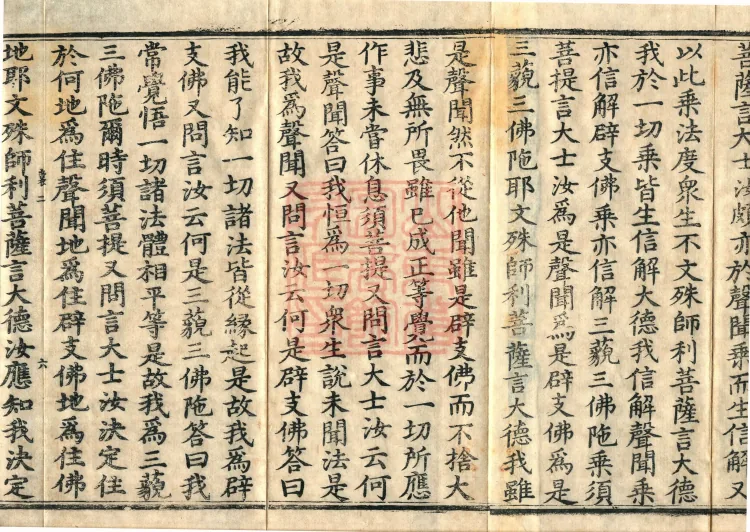 菩薩言大士汝頗亦於聲聞乘而生信解又
以此乘法度衆生不文殊師利菩薩言大德
我於一切乘皆生信解大德我信解聲聞乘
亦信解辟支佛乘亦信解三藐三佛陁乘須
菩提言大士汝爲是聲聞爲是辟支佛爲是
三藐三佛陁耶文殊師利菩薩言大德我雖
是聲聞然不從他聞雖是辟支佛而不捨大
悲及無所畏雖已成正等覺而於一切所應
作事未甞休息須菩提又問言大士汝云何
是聲聞答曰我恒爲一切衆生說未聞法是
故我爲聲聞又問言汝云何是辟支佛答曰
我能了知一切諸法皆從緣起是故我爲辟
支佛又問言汝云何是三藐三佛陁答曰我
常覺悟一切諸法體相平等是故我爲三藐
三佛陁爾時須菩提又問言大士汝決定住
於何地爲住聲聞地爲住辟支佛地爲住佛
六
地耶文殊師利菩薩言大德汝應知我決定